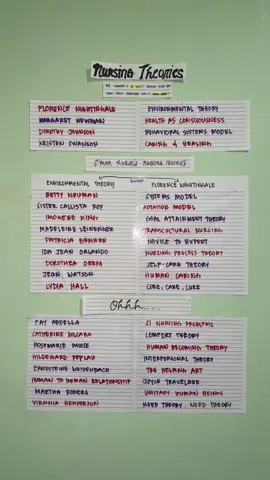 Nursing Theories
FLORENCE NIGHTINGALE ENVIRONMENTAL THEORY
MARGARET NEWMAN HEALTH AS CONSCIOUSNESS
DOROTHY JOHNSON BEHAVIORAL SYSTEMS MODEL
KRISTEN SWANSON CARING & HEALING
NURSING THEORIES
ENVIRONMENTAL THEORY FLORENCE NIGHTINGALE
BETTY NEUMAN SYSTEMS MODEL
SISTER CALLISTA ROY ADTATION MODEL
IMOGENE KING GOAL ATTAINMENT THEORY
MADELEINE LEININGER TRANSCULTURAL NURSING
PATRICIA BENNER NOVICE TO EXPERT
IDA JEAN ORLANDO NURSING PROCESS THEORY
DOROTHEA OREM SELF-CARE THEORY
JEAN WATSON HUMAN CARING
LYDIA HALL CORE, CARE, CURE
Ohhh.....
FAY ABDELLA 21 NURSING PROBLEMS
CATHERINE KOLCABA COMFORT THEORY
ROSEMARIE PARSE HUMAN BECOMING THEORY
HILDEGARD PEPLAU INTERPERSONAL THEORY
ERNESTEINE WEIDENBACH THE HELPING ART
HUMAN TO HUMAN RELATIONSHIP JOYCE TRAVELBEE
MARTHA ROGERS UNITARY HUMAN BEINGS
VIRGINIA HENDERSON NEED THEORY, NEED THEORY